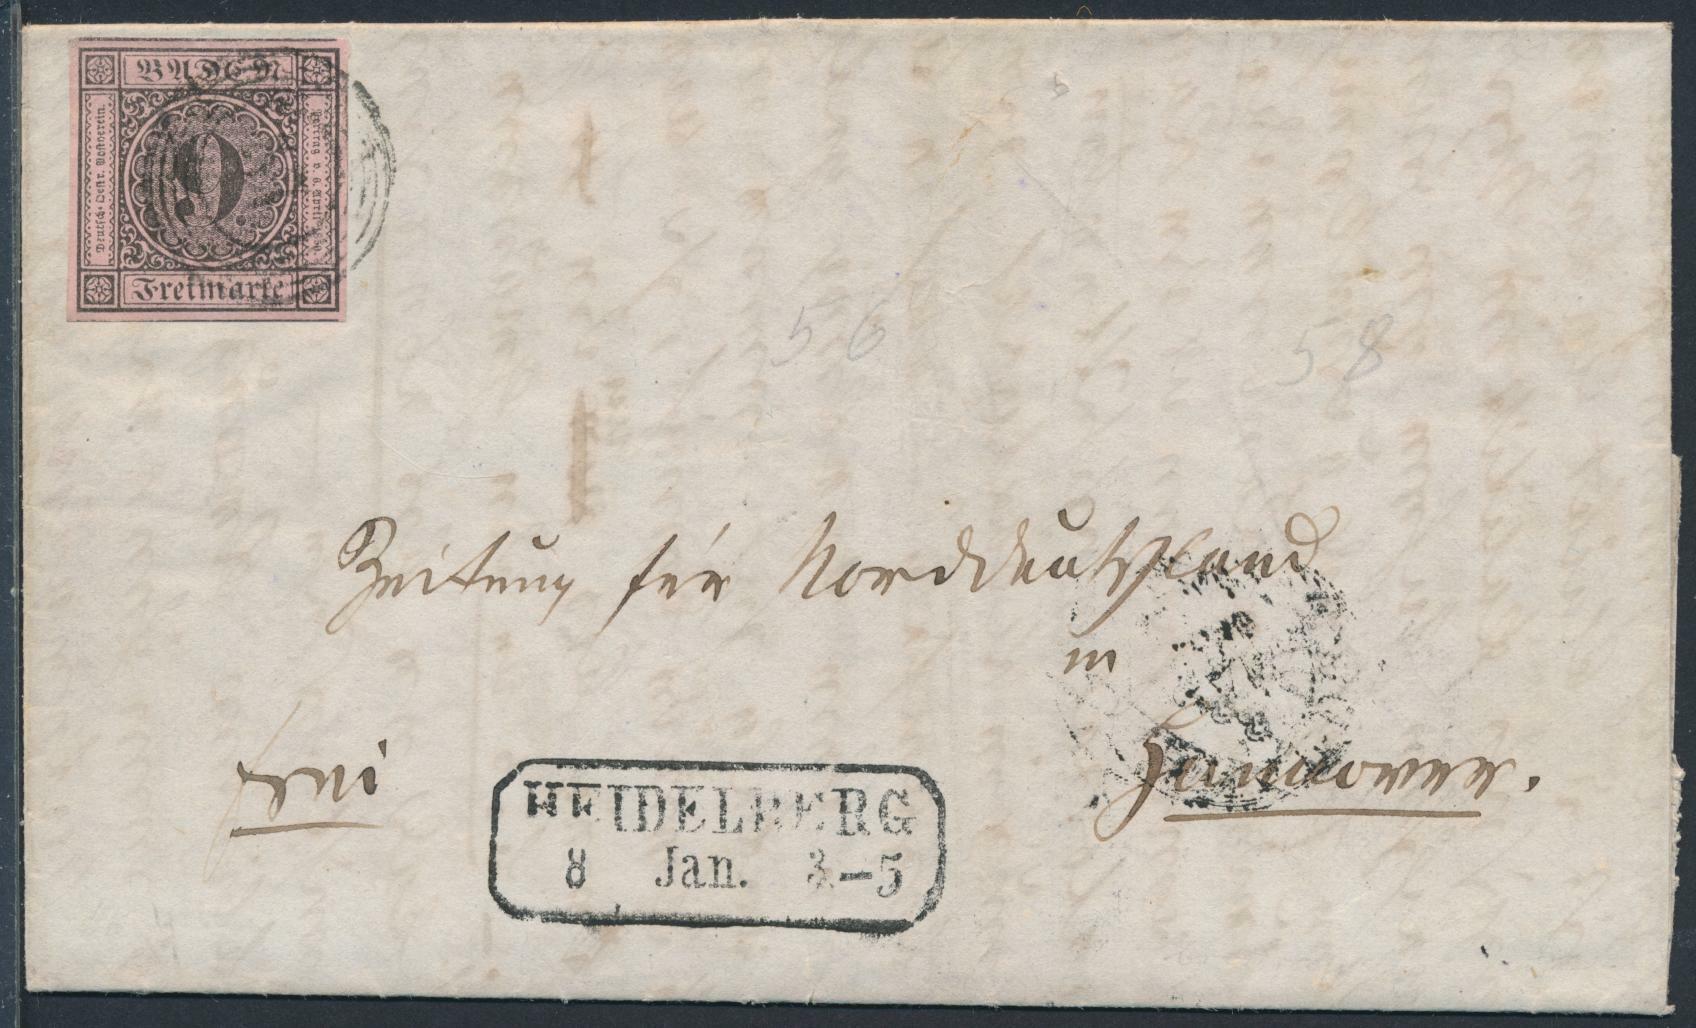 BADEN
Deutsch-Oestr. Postverein.
9.
Freimarke
5 6
5 8
Zeitung für Norddeutschland
in
Hannover.
frei
HEIDELBERG
8 Jan. 3-5